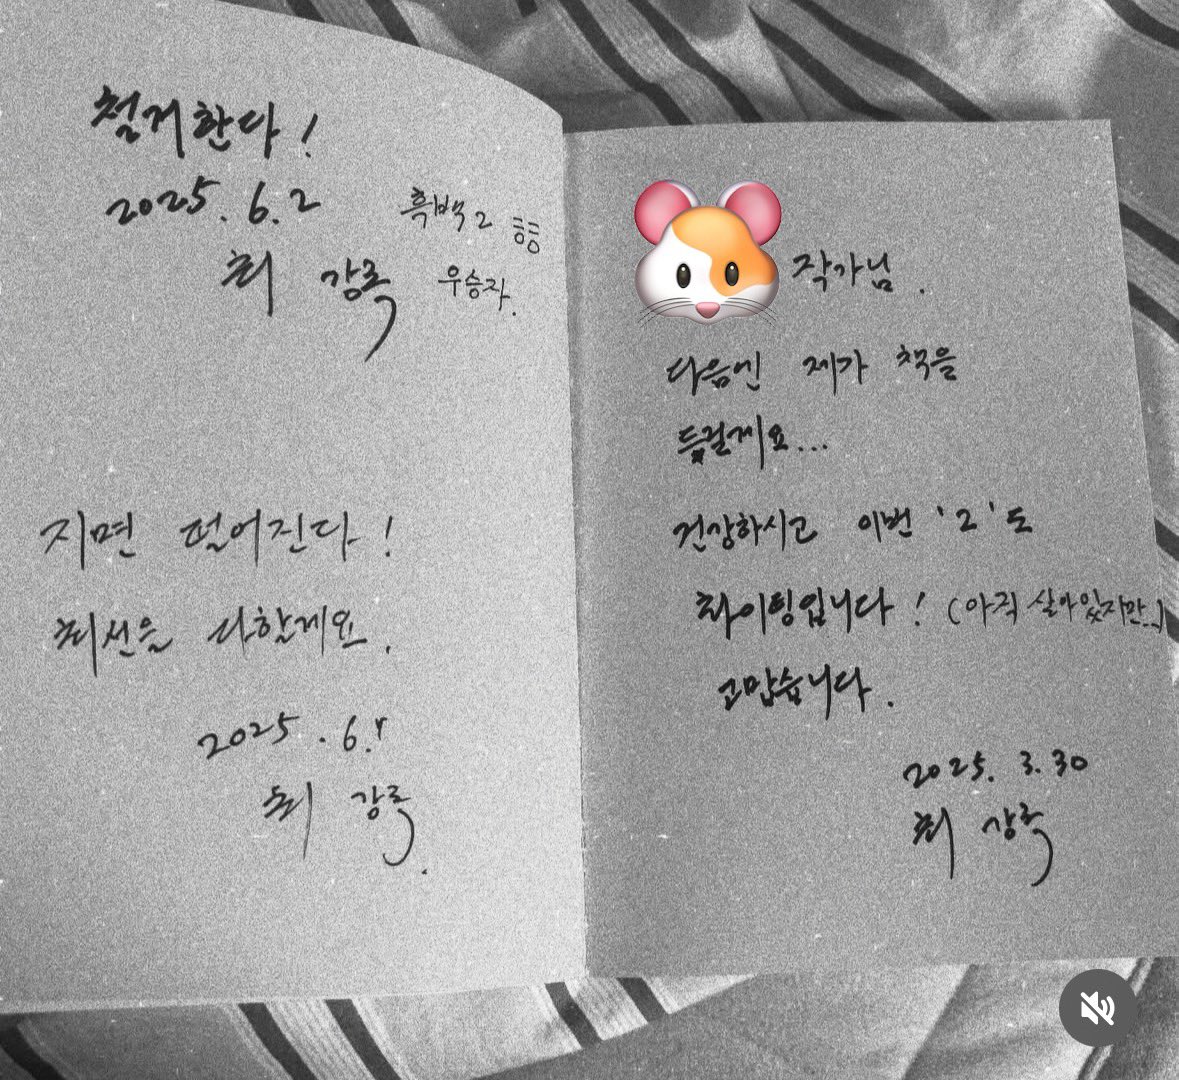 철게한다!
2025. 6. 2
최 강록
흑백 2 ㅎㅎ
우승자.
지면 떨어진다!
최선은 다할게요.
2025. 6. 1
최 강록.
작가님.
다음엔 제가 책을
듭릴게요...
건강하시고 이번 '2'도
화이팅입니다! (아직 살아있지만...)
고맙습니다.
2025. 3. 30
최 강록